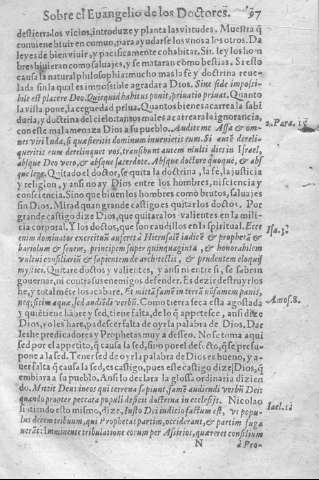 Sobre el Euangelio de los Doctores. 97
destierra los vicios, introduze y planta las virtudes. Muestra q̃
conuiene biuir en comun, para ayudarse los vnos a los otros. Da
leyes de bien viuir, y pacificamente cohabitar. Sin ley los hom
bres biuieran como saluajes, y se mataran como bestias. Si esto
causa la natural philosophia: mucho mas la fe y doctrina reue-
lada sin la qual es impossible agradar a Dios. Sine fide impossi-
bile est placere Deo. Quicquid habitus ponit, priuatio priuat. Quanto
la villa pone, la ceguedad
duria, y doctrina del cielo: tantos males acarrea la ignorancia,
con este mal amenaza Dios a su pueblo. Audite me Assa & om-
nes viri Iuda, si quæsieritis dominum inuenietis eum. Si autẽ dereli-
queritis eum derelinquet vos, transibunt autem multi dies in Israel,
absque Deo vero, & absque sacerdote. Absque doctore quoque, & abs
que lege. Quitado el doctor, se quita la doctrina, la fe, la justicia
y religion, y ansi no ay Dios entre los hombres, ni sciencia, y
consciencia. Sino que biuen los hombres como brutos, saluajes
sin Dios. Mirad quan grande castigo es quitar los doctos. Por
grande castigo dize Dios, que quitara los valientes en la mili-
cia corporal. Y los doctos, que son caudillos en la spiritual. Ecce
enim dominator exercituũ auferet à Hierusalẽ iudicẽ & prophetã &
hariolum & senem, principem super quinquaginta, & honorabilem
vultu: consiliariũ & sapientem de architectis, & prudentem eloquij
mystici. Quitare doctos y valientes, y ansi ni entre si, se sabran
gouernar, ni contra sus enemigos defender. Es dezir destruyrlos
he, y totalmẽte los acabare. Et mittã famẽ in terrã nõ famem panis,
neq; sitim aquæ, sed audiẽdi verbũ. Como tierra seca esta agostada
y quiẽ tiene hãbre y sed, tiene falta, de lo q̃ appetesce, ansi dize
Dios, yo les hare, padescer falta de oyr la palabra de Dios. Dar
les he predicadores y Prophetas muy a desseo. No se toma aqui
sed por el appetito, q̃ causa la sed, sino por el defecto, q̃ se presu-
pone a la sed. Tener sed de oyr la palabra de Dios es bueno, y a-
uer falta q̃ causa la sed, es castigo, pues este castigo dize Dios, q̃
embiara a su pueblo. Ansi lo declara la glossa ordinaria dizien
do. Mittit Deus in eos qui terrena sapiunt, famẽ audiendi verbũ Dei
quando propter peccata populi deficit doctrina in ecclesijs. Nicolao
sintiendo esto mismo, dize, Iusto Dei iudicio factum est, vt popu-
lus decem tribuum, qui Prophetas partim, occiderant, & partim fuga
uerãt: Imminente tribulatione eorum per Assirios, quæreret consilium
N à Pro-
2. Para. 15
Isa. 3.
Amos. 8.